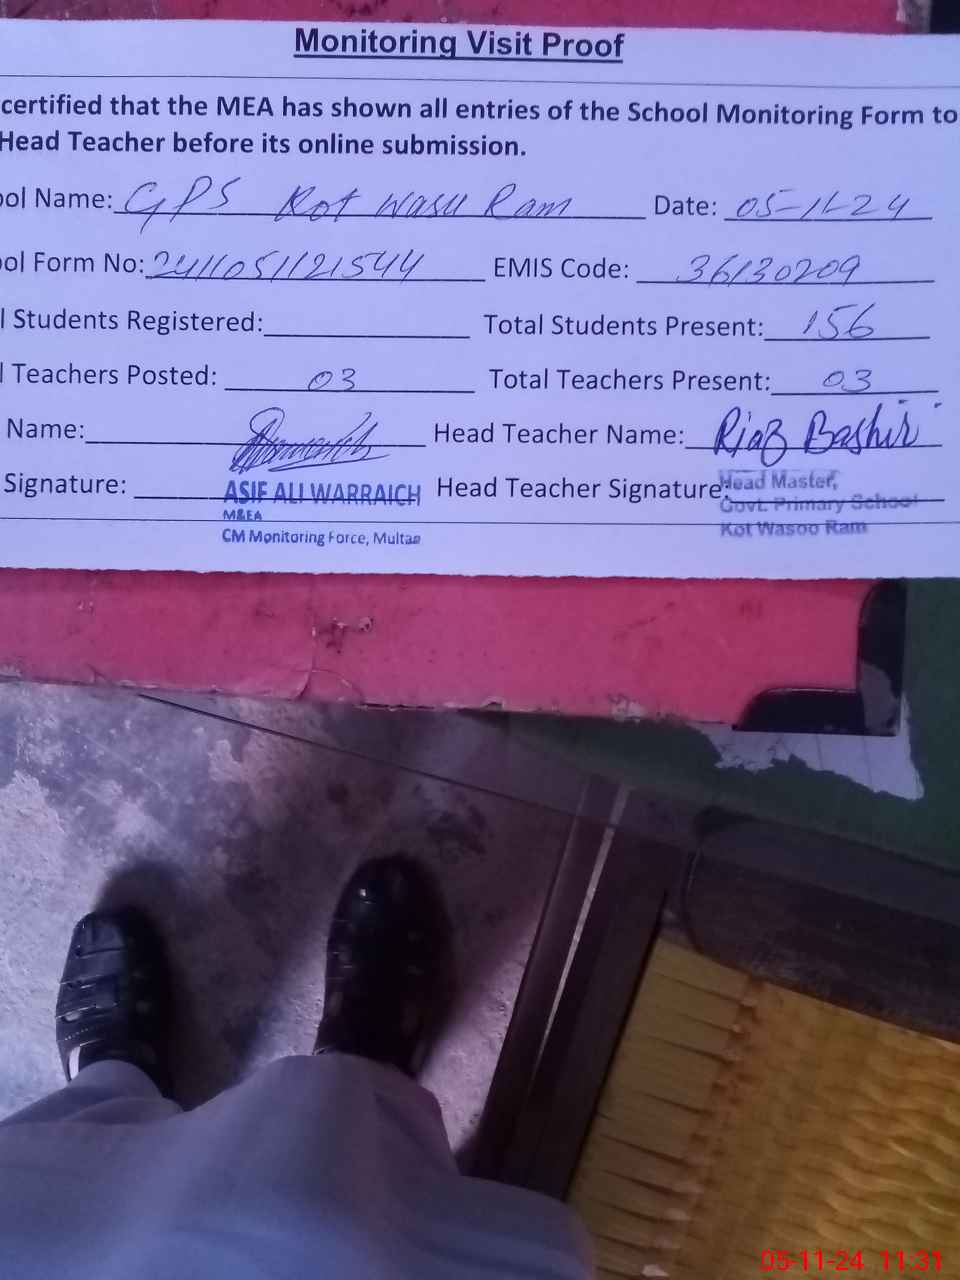 Monitoring Visit Proof
certified that the MEA has shown all entries of the School Monitoring Form to
Head Teacher before its online submission.
ool Name: GPS Kot Wasu Ram Date: 05-11-24
ool Form No: 2411051121544 EMIS Code: 36130209
l Students Registered: Total Students Present: 156
l Teachers Posted: 03 Total Teachers Present: 03
Name: Head Teacher Name: Riaz Bashir
Signature: ASIF ALI WARRAICH Head Teacher Signature: Head Master,
M&EA Govt. Primary School
CM Monitoring Force, Multan Kot Wasoo Ram
05-11-24 11:31